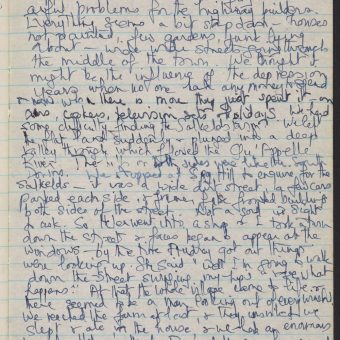 awful problems for the national builders.
Everything seems a bit slapdash – houses
not painted, few gardens, junk lying
about – wide wide streets going through
the middle of the town. We thought it
might be the influence of the depression
years when no one had any money to spend
& now when there is more they just spend it on
cars, cookers, television sets & holidays. We had
some difficulty finding the Salkelds farm. We left
the and suddenly plunged into a deep
valley through which flowed the Qu'Appelle
River. The both sides were like the South
Downs. We stopped at Spy Hill to enquire for the
Salkelds – it was a wide dirt street, a few cars
parked each side & frame, false fronted buildings
both sides of the street. Not a soul in sight
to ask. So Peter went into a shop & I took turn
down the street & faces began to appear at the
windows – by the time Audrey got out things
were looking up. She said "well I'm going to walk
down the street singing, just how & see what
happens." At that the whole village came to life &
there seemed to be a man looking out of everywhere
we reached the farm at & they insisted we
slept & ate in the house & we had an enormous